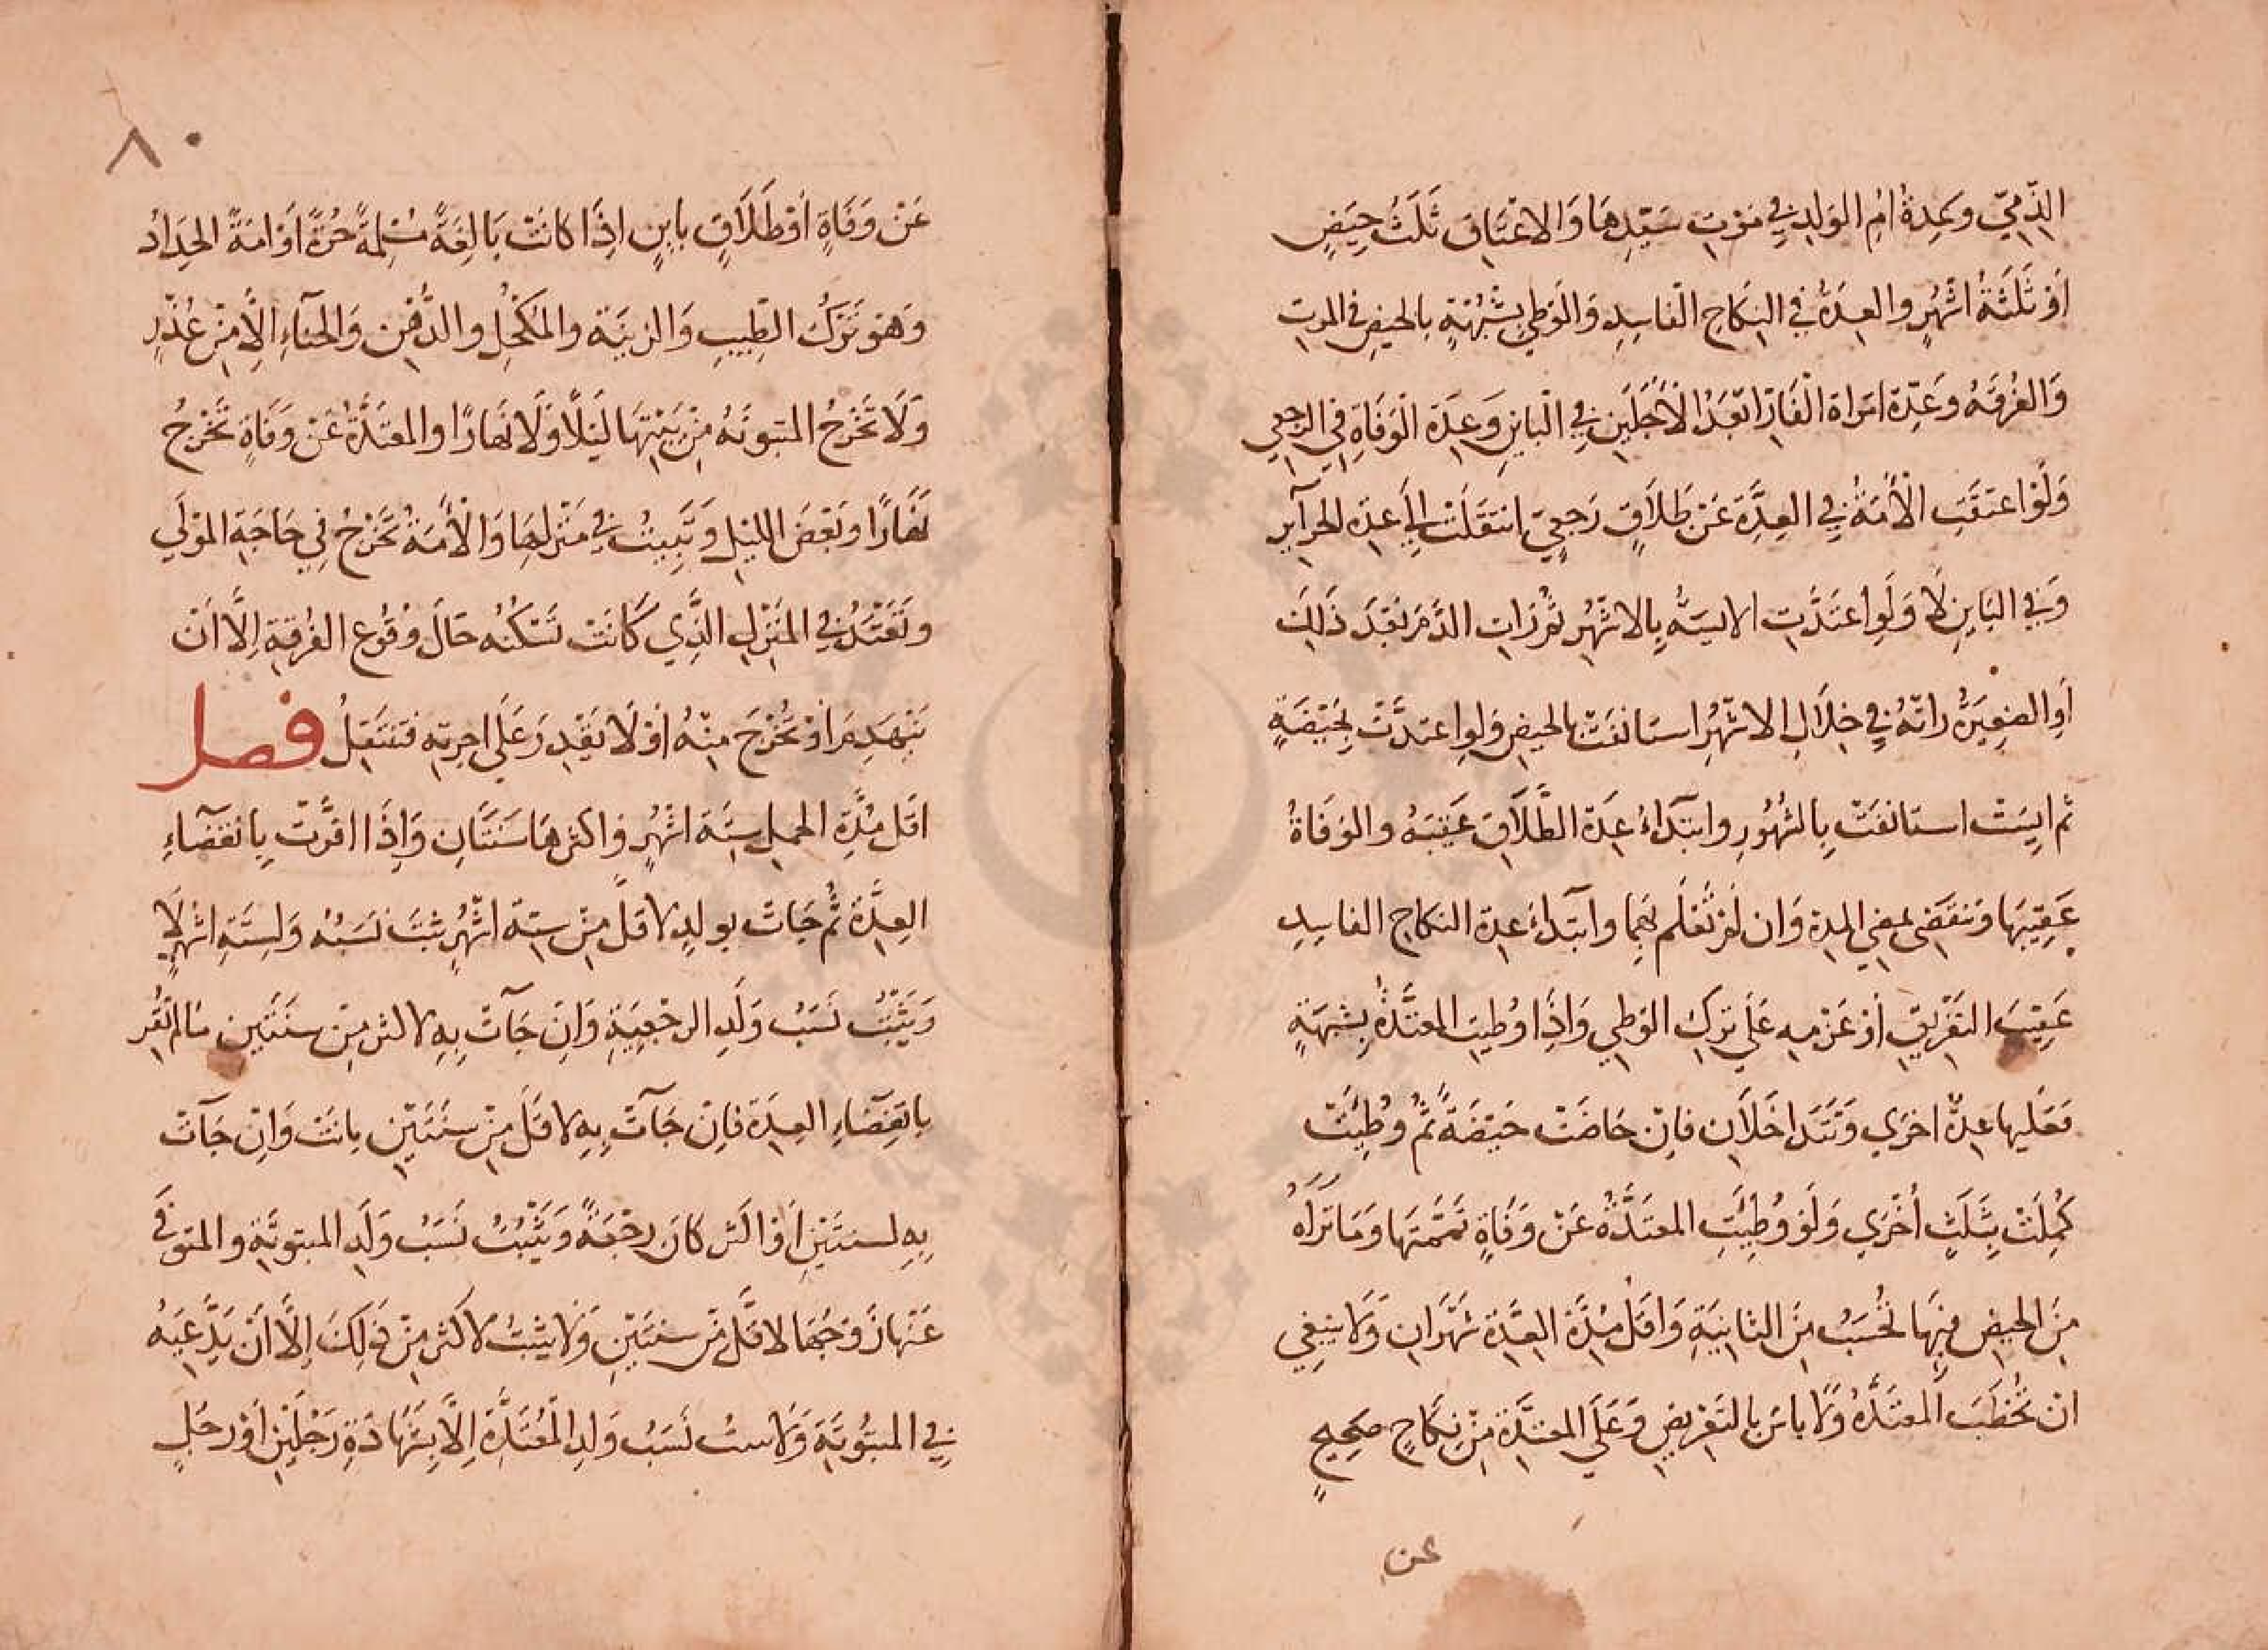 الذِّمِيِّ وعِدةُ امِ الوَلدِ في مَوْتِ سَيِّدِهَا وَالاعْتَاقِ ثَلَثُ حِيَضٍ
اَوْ ثَلَثَةُ اشْهُرٍ والعِدَةُ في النِكَاحِ الْفاسِدِ وَالْوَطْيِ بِشُبْهَةٍ بالحيضِ في الموتِ
وَالفُرقَهِ وعَدِّة امرَاة الْفَارِّ ابْعَدُ الْأَجَلَينِ في الْبايِنِ وَعِدَة الْوَفَاةِ في الرجعي
وَلَوْ اعتقَتِ الْأَمَةُ فِي العِدَّةِ عَنْ طَلَاقٍ رَجعِيٍّ انتَقَلَتْ الي عدة الحرآير
وَفي البَايِنِ لَا وَلَوِ اعتَدَّتِ الايسَةُ بِالاشْهُرِ ثم رَاتِ الدَّمَ بَعْدَ ذَلِكَ
اَوِ الصَغِيرَةُ راتْهُ في خِلَالِ الاشْهُرِ استَانَفَتْ بالحيضِ وَلوِ اعتدَّتْ بحَيْضَةٍ
ثم ايِسَتْ استانفَتْ بِالشُهُورِ وابتَدآءُ عِدَة الطَّلَاقِ عَقِيبَهُ والوَفَاةُ
عَقِيبَهَا وَتنقَضى بمضي المدة وَان لَمْ تَعْلَم بهِمَا وابتَدآءُ عِدة النكاحِ الفاسِدِ
عَقِيْبَ التَفْرِيْقِ اَوْ عَزْمِهِ عَلَي تركِ الوَطِي وَاِذَا وُطِيَتِ المعتَدَّةُ بِشبهَةٍ
فَعَلَيها عِدةٌ اخرَي وَتَتَدَاخَلَانِ فاِنْ حَاضَتْ حَيْضَةً ثُمَّ وُطِئَتْ
كَمُلَتْ بِثَلَثٍ أُخْرَي وَلَوْ وُطِئَتِ المعتَدَّةُ عَنْ وَفَاةٍ تمَّمَتهَا وَمَا تَرَاهُ
مِنَ الحيضِ فِيهَا تُحسَبُ مِنَ الثانِيَةِ وَاقَلُ مُدَّة العِدَّة شَهْرَانِ وَلَا ينبغي
ان تُخْطَبَ المعتَدَّةُ وَلَا باسَ بِالتَعْريضِ وَعَلَي المعتَدَّة مِنْ نِكَاحٍ صَحِيحٍ
عن
٨٠
عَنْ وَفَاةٍ اَوْ طَلَاقٍ باينٍ اِذَا كَانَتْ بَالِغَةً مُسْلِمَةً حُرَّةً اَوْ امَةً الحِدَادُ
وَهوَ تَرْكُ الطِيبِ وَالزِينَة والكُحْلِ والدُّهْنِ وَالحنآءِ اِلَّا مِنْ عُذْرٍ
وَلَا تَخْرُجُ المبتوتَةُ مِنْ بَيْتِهَا لَيْلًا وَلَا نَهَارًا والمعتَدَّةُ عَنْ وَفَاةٍ تَخْرُجُ
نَهَارًا وبَعْضَ اللَيْلِ وَتَبِيتُ في مَنْزلِهَا وَالْأَمَةُ تَخْرُجُ فِي حَاجَةِ المَوْلَي
وتَعْتَدُّ في المَنْزلِ الَّذِي كَانَتْ تَسْكُنُه حَالَ وُقوُع الفُرقةِ اِلَّا اَنْ
يَنْهَدِمَ اَوْ تُخْرَجَ مِنْهُ اَوْ لَا تَقْدِرَ عَلَي اجرِتهِ فَتنتَقِلُ فصل
اقَل مُدَّة الحمل سِتَة اشْهُرٍ وَاكثرهَا سَنَتَانِ وَاِذَا اقرَّتْ بِانْقضَآءِ
العِدَّة ثُم جَاتْ بولدٍ لاقَلَّ مِنْ سِتة اشْهُرٍ ثبَتَ نَسَبُه وَلِستَّةِ اشهرٍ لَا
وَيَثْبُتُ نَسَبُ وَلَدِ الرجْعِيَةِ وَاِنْ جَآءتْ بِهِ لاكثر مِنْ سنَتَينِ مَا لم تُقِر
باِنْقِضَآءِ العِدَة فاِنْ جَآءتْ بِهِ لاقَلَ مِنْ سنَتَيْنِ بانَتْ وَاِنْ جَآءتْ
بِهِ لسنتَيْنِ اَوْ اكثر كَانَ رجْعَةً وَيَثْبُتُ نَسَبُ وَلَدِ المبتوتَةِ والمتوفَّى
عَنْهَا زَوْجُهَا لاقَلَّ مِن سنتَيْنِ وَلَا يثبتُ لاكثر مِنْ ذَلِكَ اِلَّا اَنْ يَدَّعِيَهُ
في المبتُوتَةِ وَلَا يثبتُ نَسَبُ وَلدِ الْمُعْتَدَّةِ اِلَّا بِشَهَادَةِ رَجُلَيْنِ اَوْ رجُلٍ